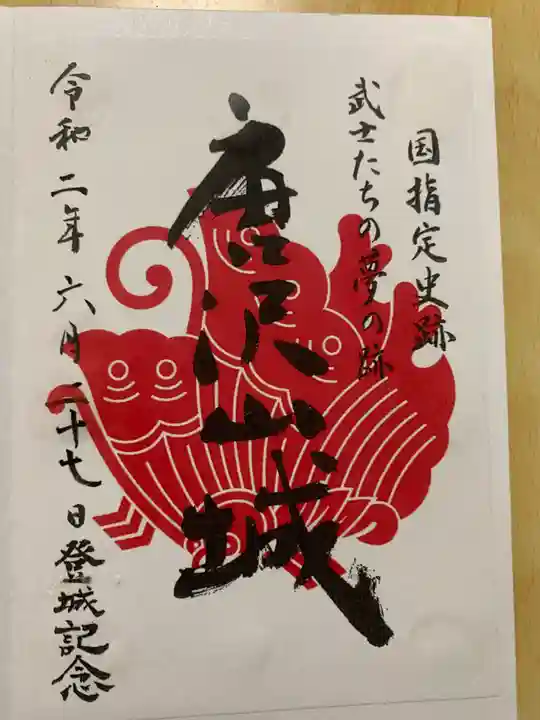 国指定史跡
武士たちの夢の跡
唐沢山城
令和二年六月二十七日登城記念